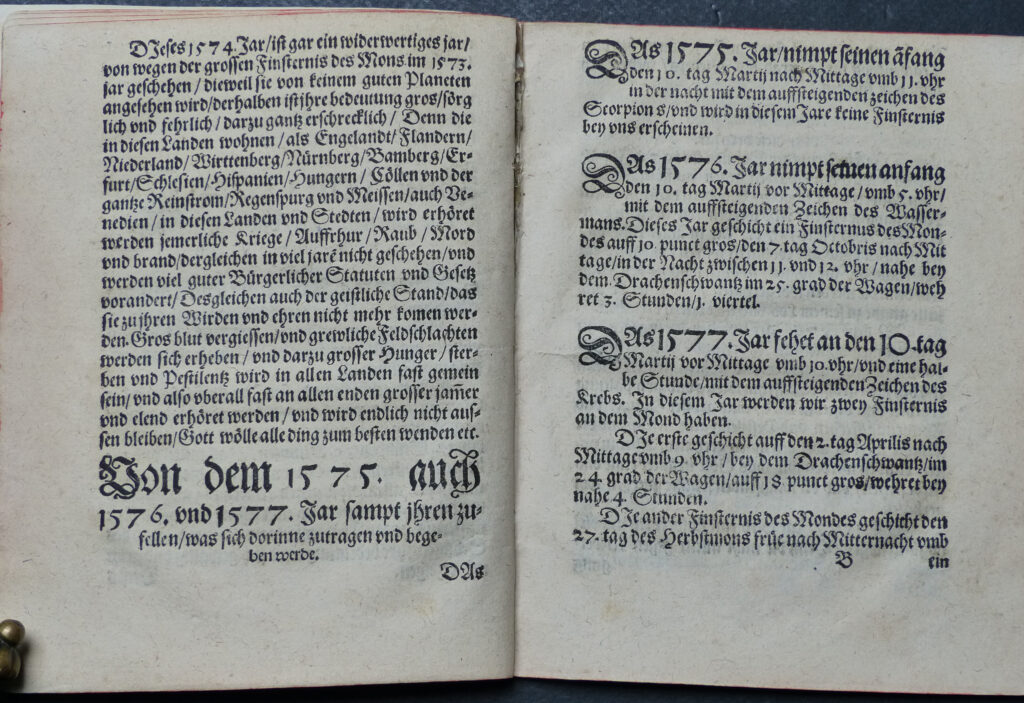 DIeses 1574. Jar/ist gar ein widerwertiges jar/
von wegen der grossen Finsternis des Mons im 1573.
jar geschehen / dieweil sie von keinem guten Planeten
angesehen wird/derhalben ist jhre bedeutung gros/sörg
lich vnd fehrlich / darzu gantz erschrecklich / Denn die
in diesen Landen wohnen / als Engelandt/ Flandern/
Niederland / Wirttenberg/Nürnberg/Bamberg/Er-
furt/Schlesien/Hispanien/Hungern / Cöllen vnd der
gantze Reinstrom/Regenspurg vnd Meissen/auch Ve-
nedien / in diesen Landen vnd Stedten / wird erhöret
werden jemerliche Kriege / Auffrhur / Raub / Mord
vnd brand/dergleichen in viel jarē nicht geschehen/vnd
werden viel guter Bürgerlicher Statuten vnd Gesetz
vorandert/ Desgleichen auch der geistliche Stand/das
sie zu jhren Wirden vnd ehren nicht mehr komen wer-
den. Gros blut vergiessen/vnd grewliche Feldschlachten
werden sich erheben / vnd darzu grosser Hunger / ster-
ben vnd Pestilentz wird in allen Landen fast gemein
sein/vnd also vberall fast an allen enden grosser jam̄er
vnd elend erhöret werden / vnd wird endlich nicht auss-
sen bleiben/Gott wölle alle ding zum besten wenden etc.
Von dem 1575. auch
1576. vnd 1577. Jar sampt jhren zu-
fellen/was sich dorinne zutragen vnd bege-
ben werde.
DAs
DAs 1575. Jar/nimpt seinen āfang
den 10. tag Martij nach Mittage vmb 11. vhr
in der nacht mit dem auffsteigenden zeichen des
Scorpions/vnd wird in diesem Jare keine Finsternis
bey vns erscheinen.
DAs 1576. Jar nimpt seinen anfang
den 10. tag Martij vor Mittage / vmb 5. vhr/
mit dem auffsteigenden Zeichen des Wasser-
mans. Dieses Jar geschicht ein Finsternus des Mon-
des auff 10. punct gros/den 7. tag Octobris nach Mit
tage/in der Nacht zwischen 11. vnd 12. vhr / nahe bey
dem Drachenschwantz im 25. grad der Wagen/weh
ret 3. Stunden/1. viertel.
DAs 1577. Jar fehet an den 10. tag
Martij vor Mittage vmb 10. vhr/vnd eine hal-
be Stunde/mit dem auffsteigenden Zeichen des
Krebs. In diesem Jar werden wir zwey Finsternis
an dem Mond haben.
DIe erste geschicht auff den 2. tag Aprilis nach
Mittage vmb 9. vhr / bey dem Drachenschwantz/im
24. grad der Wagen/auff 18. punct gros/wehret bey
nahe 4. Stunden.
DIe ander Finsternis des Mondes geschicht den
27. tag des Herbstmons früe nach Mitternacht vmb
B ein